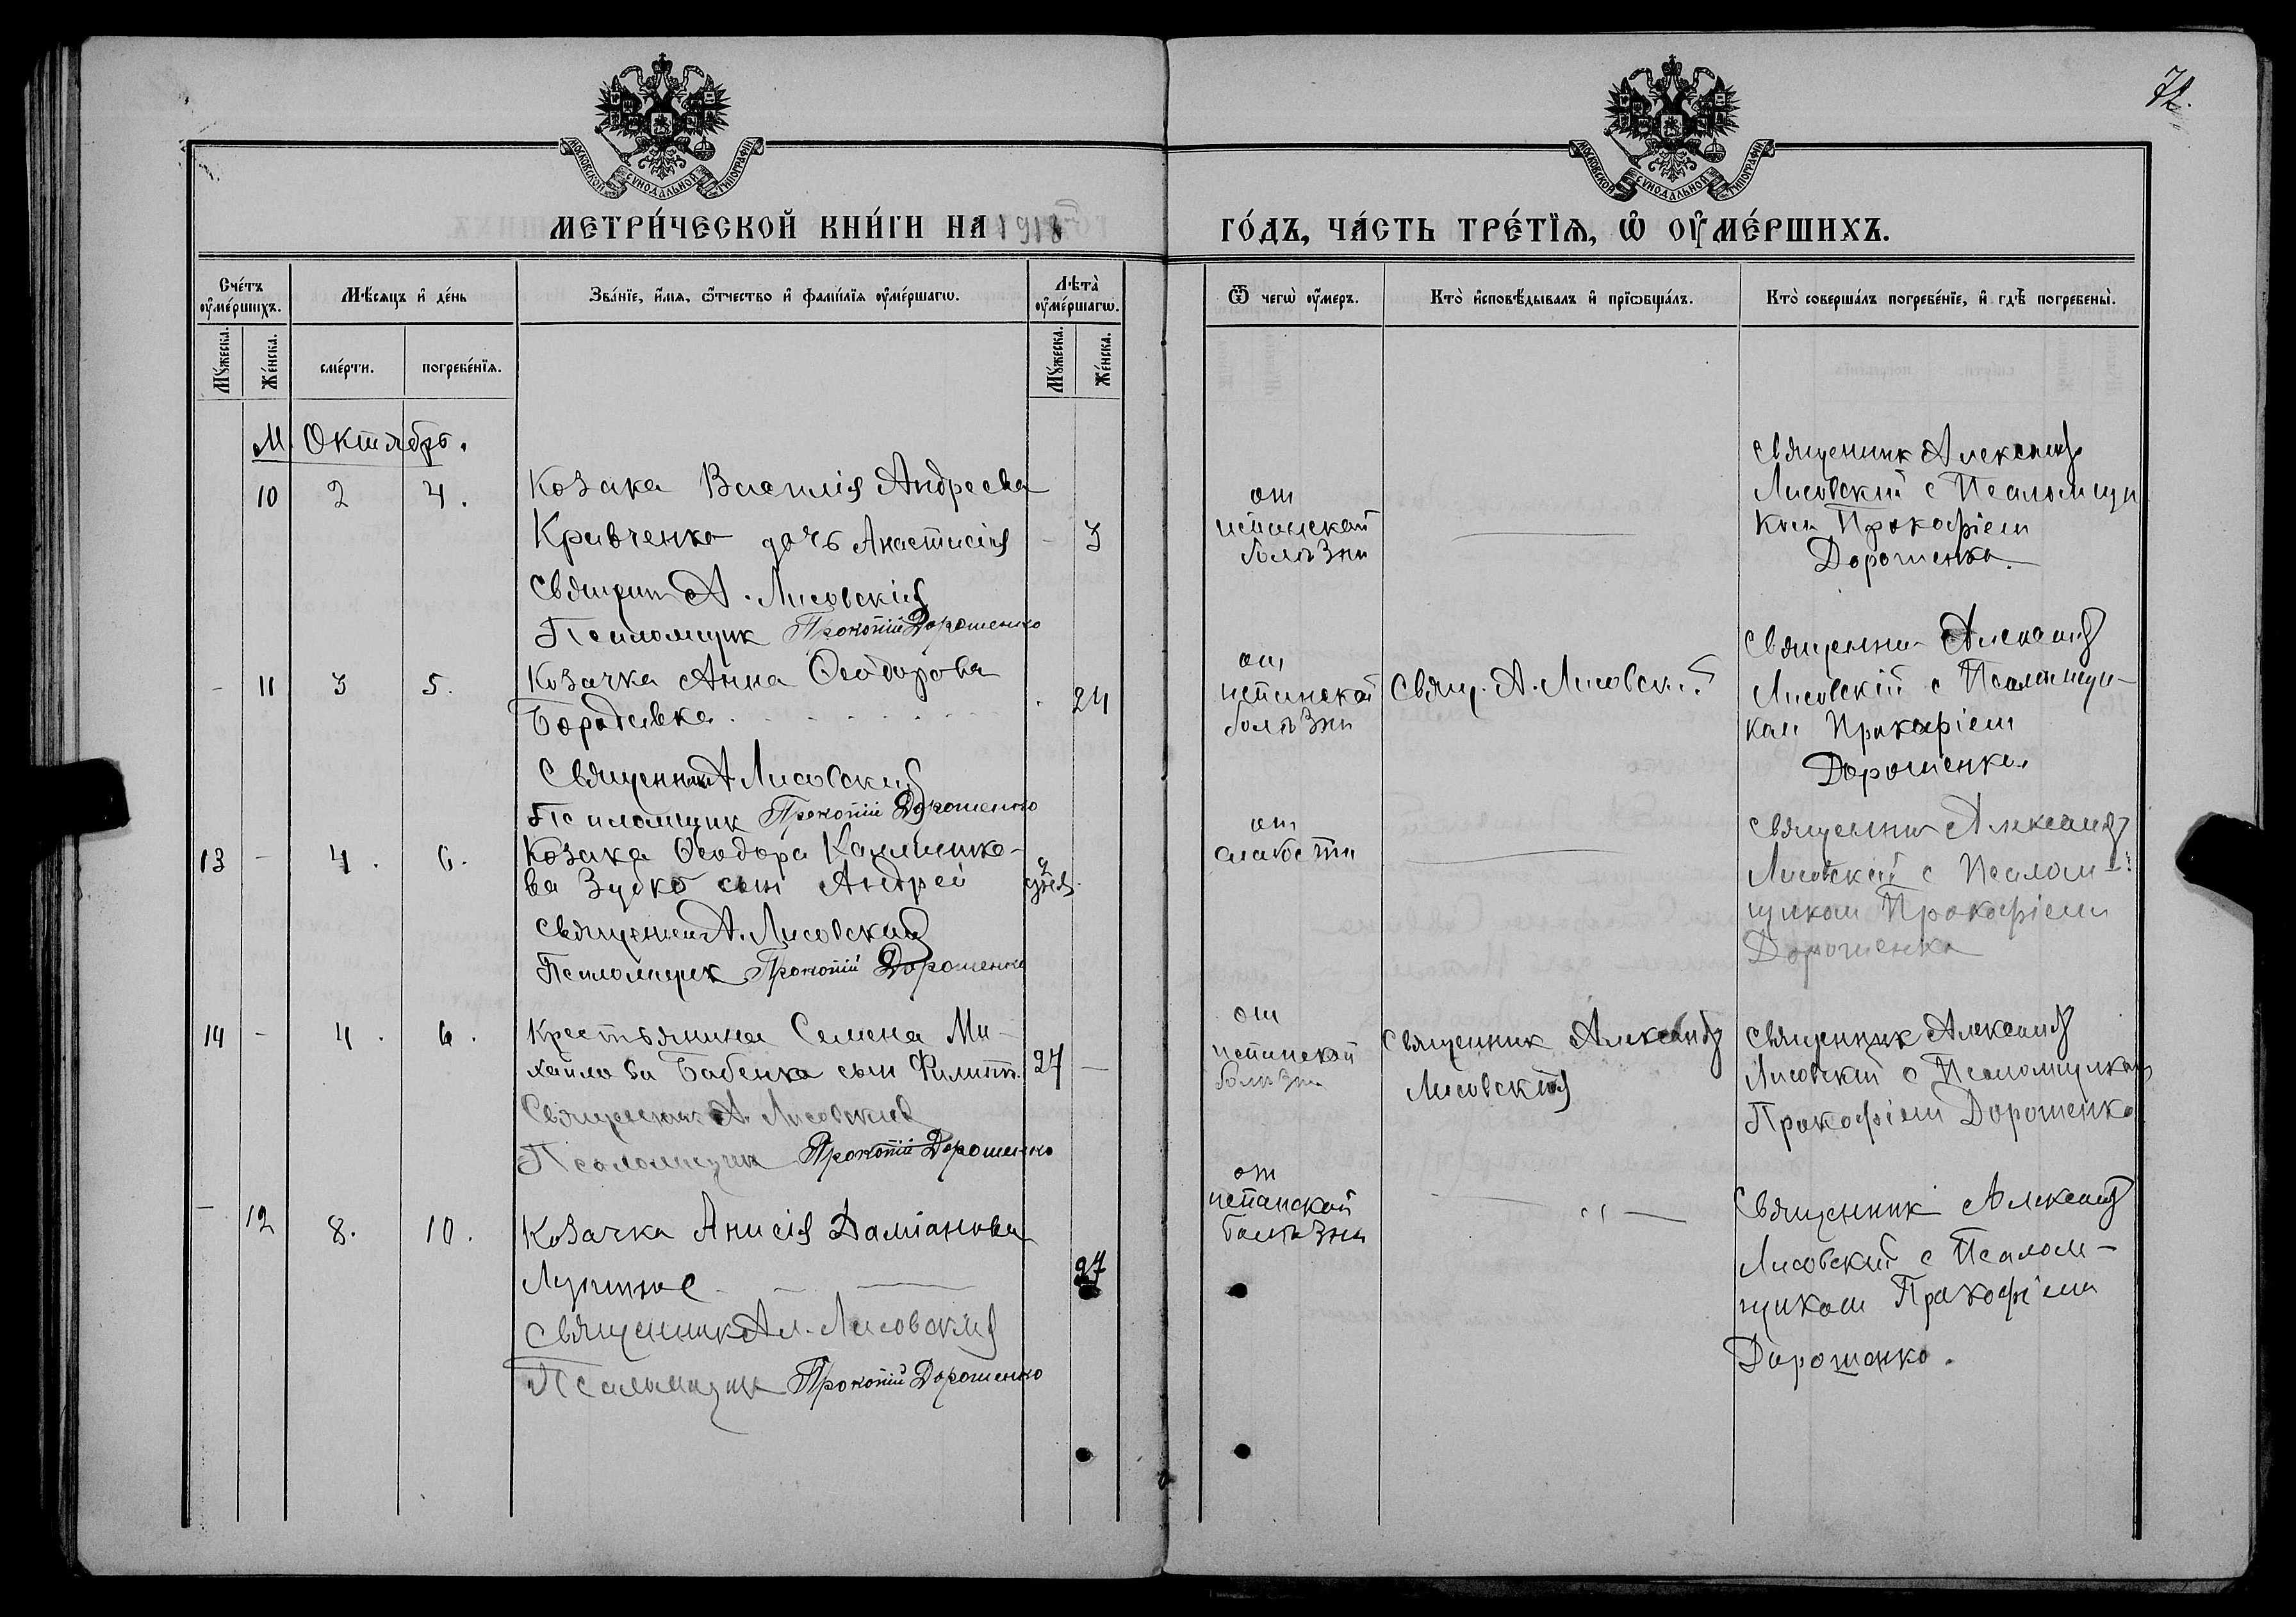 72.
МОСКОВСКОЙ СѴНОДАЛЬНОЙ ТИПОГРАФІИ
МОСКОВСКОЙ СѴНОДАЛЬНОЙ ТИПОГРАФІИ
МЕТРИ́ЧЕСКОЙ КНИ́ГИ НА 1918
ГО́ДЪ, ЧА́СТЬ ТРЕ́ТЇѦ, Ѡ҆ ОУ҆МЕ́РШИХЪ.
Сче́тъ оу҆ме́ршихъ.
Мѣ́сѧцъ и҆ де́нь
Зва́нїе, и҆́мѧ, ѻ҆́тчество и҆ фами́лїѧ оу҆ме́ршагѡ.
Лѣта̀ оу҆ме́ршагѡ.
Ѿ чегѡ̀ оу҆́меръ.
Кто̀ и҆сповѣ́дывалъ и҆ прїѡбща́лъ.
Кто̀ соверша́лъ погребе́нїе, и҆ гдѣ̀ погребены̀.
Му́жеска.
Же́нска.
сме́рти.
погребе́нїѧ.
Му́жеска.
Же́нска.
М. Октябрь.
10 2 4. Козака Василія Андреева
Кравченко дочь Анастасія - 3
Священ А. Лисовскій
Псаломщик Прокопій Дорошенко
от
испанской
болѣзни
Священник Александр
Лисовский с Псаломщи
ком Прокофіем
Дорошенко.
- 11 3 5. Козачка Анна Ѳеодорова
Бородавка. 24
Священник А Лисовский
Псаломщик Прокопій Дорошенко
от
испанской
болѣзни
Свящ. А. Лисовский
Священник Александр
Лисовскій с Псаломщи-
ком Прокофіем
Дорошенко.
13 - 4. 6. Козака Ѳеодора
ва Зубко сын Андрей
Священник А. Лисовский
Псаломщик Прокопій Дорошенко
от
слабости
Священник Александр
Лисовский с Псалом-
щиком Прокофіем
Дорошенко
14 - 4. 6. Крестьянина Семена Ми-
хайлова Бабенко сын Филипп. 27 -
Священник А. Лисовский
Псаломщик Прокопій Дорошенко
от
испанской
болѣзни
Священник Александр
Лисовский
Священник Александр
Лисовский с Псаломщиком
Прокофіем Дорошенко
- 12 8. 10. Козачка Анисія Даміанова
27
Священник Ал. Лисовский
Псаломщик Прокопій Дорошенко
от
испанской
болѣзни
— " —
Священник Александр
Лисовский с Псалом-
щиком Прокофіем
Дорошенко.